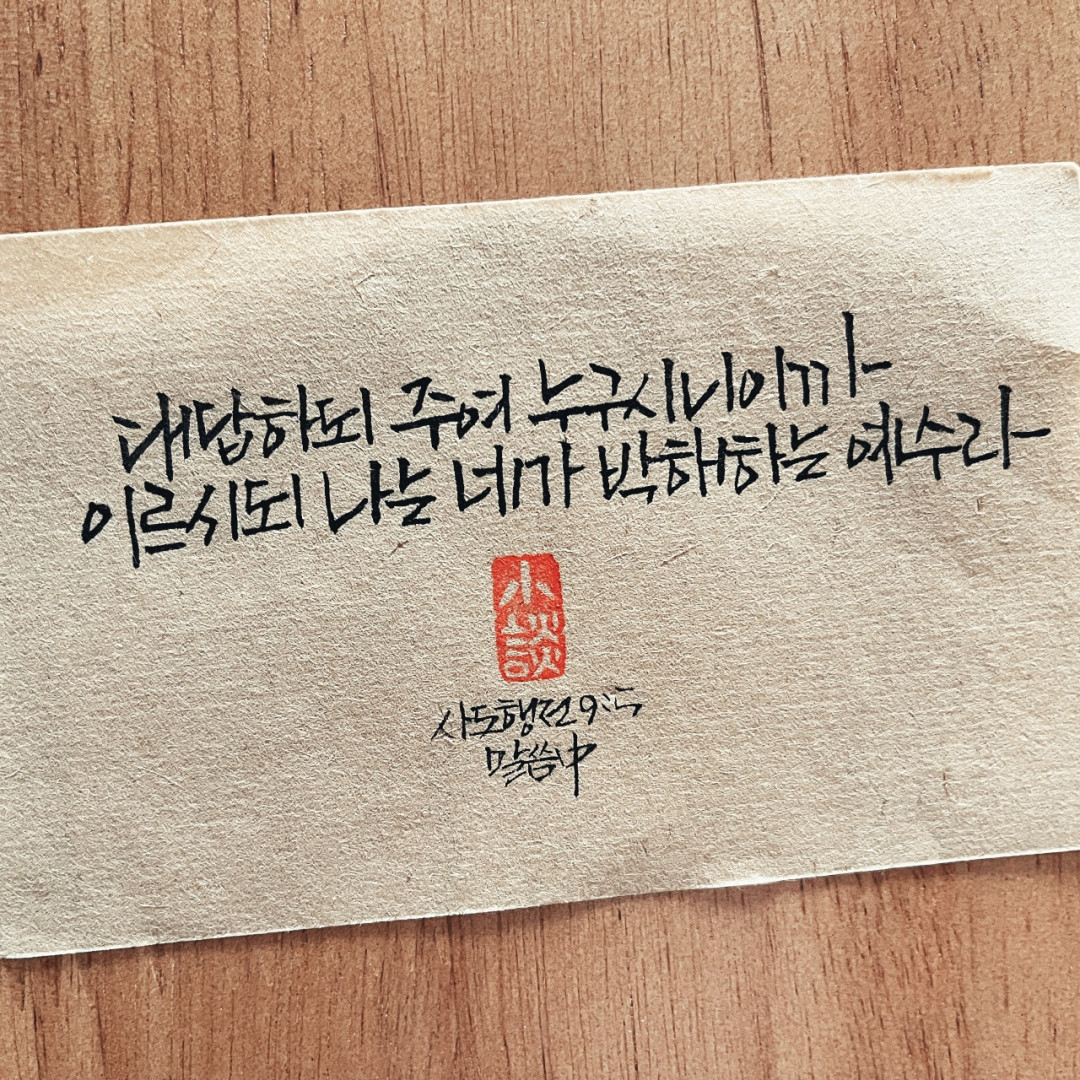 대답하되 주여 누구시니이까
이르시되 나는 네가 박해하는 예수라
小
談
사도행전 9:5
말씀中